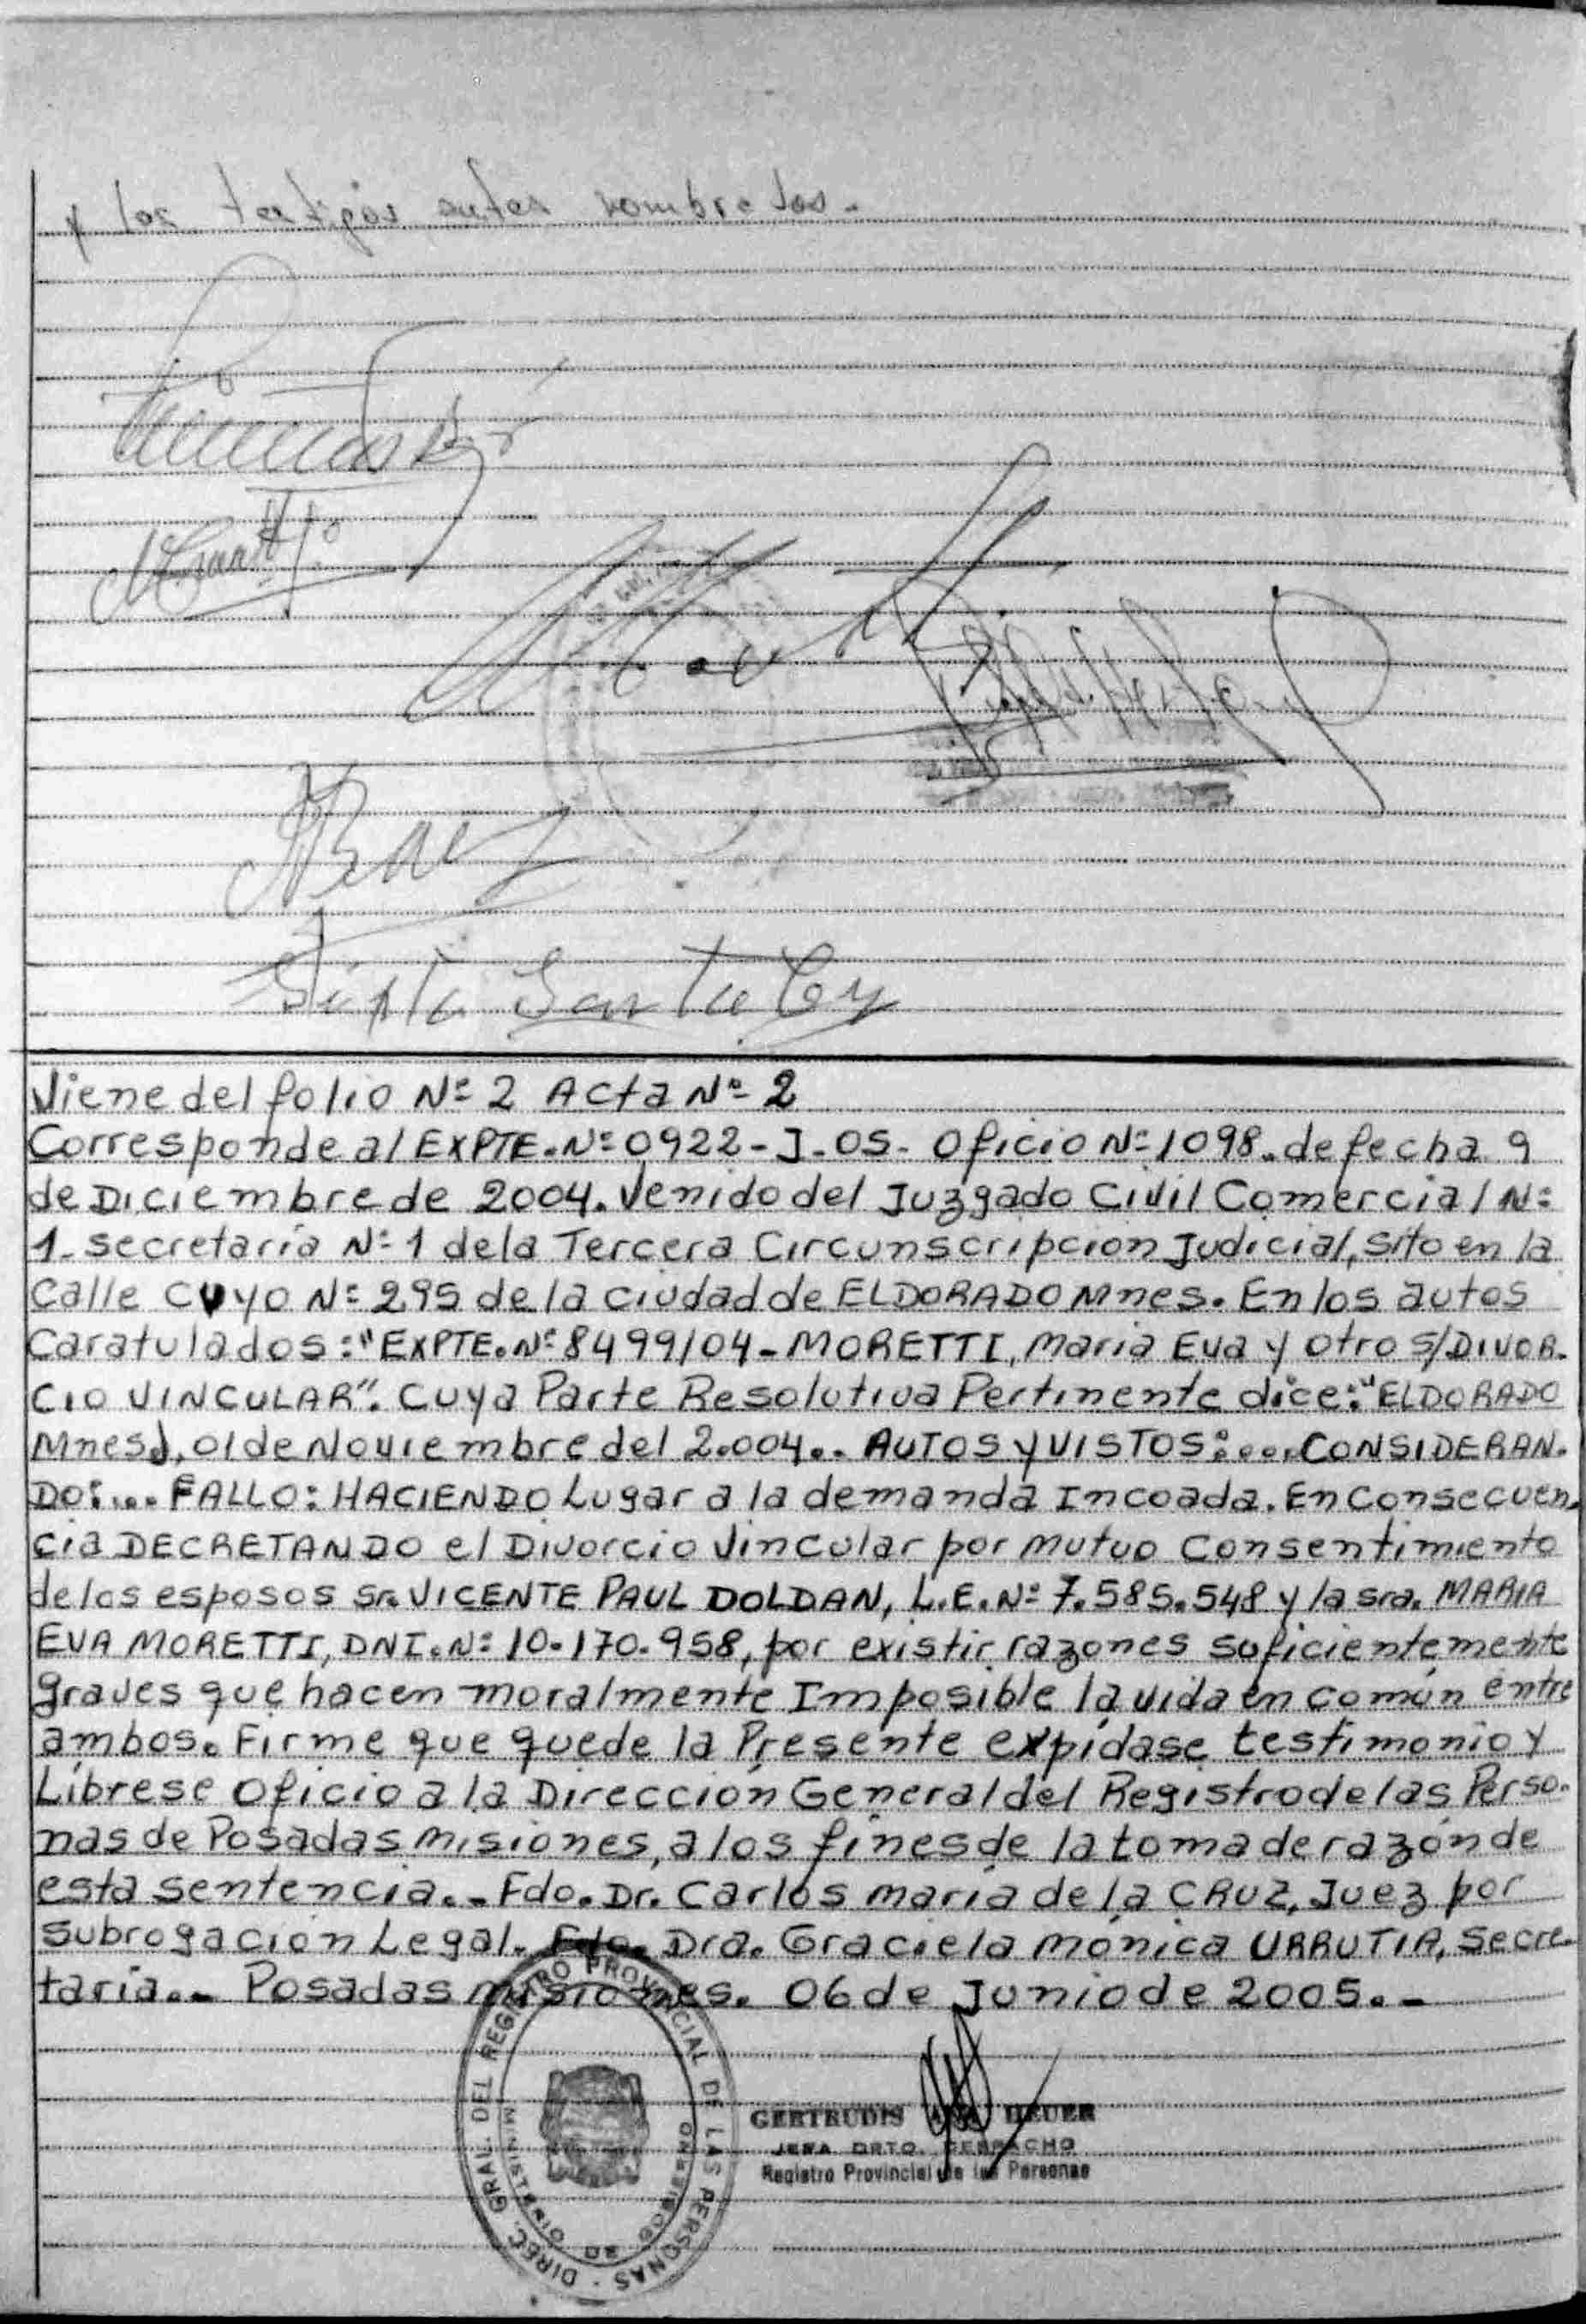 y los testigos antes nombrados.-
Sixto Santa Cruz
Viene del folio Nº 2 Acta Nº 2
Corresponde al EXPTE. Nº 0922-J-05- Oficio Nº 1098. de fecha 9
de Diciembre de 2004. Venido del Juzgado Civil Comercial Nº
1- secretaría Nº 1 de la Tercera Circunscripcion Judicial, sito en la
Calle CUYO Nº 295 de la ciudad de ELDORADO Mnes. En los autos
Caratulados: "EXPTE. Nº 8499/04-MORETTI, Maria Eva y otro s/DIVOR-
CIO VINCULAR". Cuya Parte Resolutiva Pertinente dice: "ELDORADO
Mnes), 01 de Noviembre del 2.004.. AUTOS Y VISTOS:.... CONSIDERAN-
DO:... FALLO: HACIENDO Lugar a la demanda Incoada. En Consecuen-
cia DECRETANDO el Divorcio Vincular por mutuo Consentimiento
de los esposos Sr. VICENTE PAUL DOLDAN, L.E. Nº 7.585.548 y la sra. MARIA
EVA MORETTI, DNI. Nº 10.170.958, por existir razones suficientemente
graves que hacen moralmente Imposible la vida en común entre
ambos. Firme que quede la Presente expídase testimonio y
Líbrese Oficio a la Dirección General del Registro de las Perso-
nas de Posadas Misiones, a los fines de la toma de razón de
esta sentencia.- Fdo. Dr. Carlos María de la CRUZ, Juez por
Subrogación Legal. Fdo. Dra. Graciela Mónica URRUTIA, Secre-
taria.- Posadas Misiones. 06 de Junio de 2005.-
DIREC. GRAL. DEL REGISTRO PROVINCIAL DE LAS PERSONAS
MINISTERIO DE GOBIERNO
GERTRUDIS HEUER
JEFA DPTO. DESPACHO
Registro Provincial de las Personas